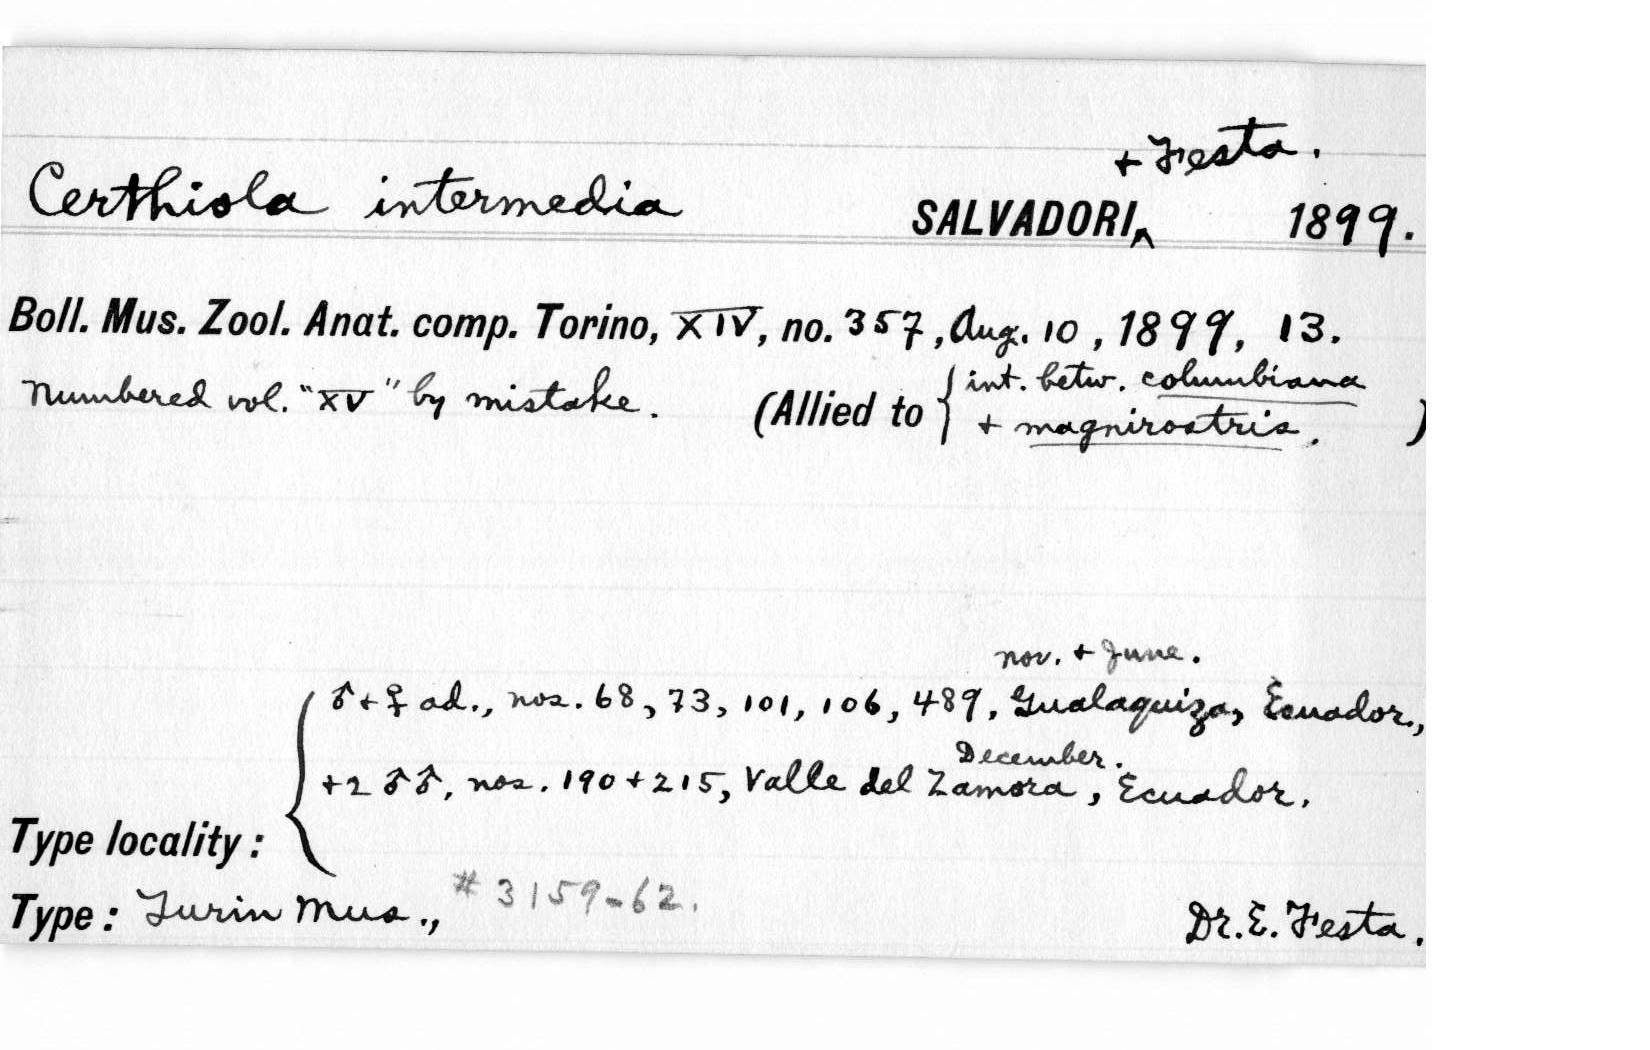 + Festa.
Certhiola intermedia SALVADORI‸ 1899.
Boll. Mus. Zool. Anat. comp. Torino, XIV, no. 357, Aug. 10, 1899, 13.
Numbered vol. "XV" by mistake. (Allied to { int. betw. columbiana
+ magnirostris. )
nov. + June.
♂ + ♀ ad., nos. 68, 73, 101, 106, 489, Gualaquiza, Ecuador.,
December.
+ 2 ♂♂, nos. 190 + 215, Valle del Zamora, Ecuador.
Type locality: {
Type: Turin Mus., # 3159-62. Dr. E. Festa.